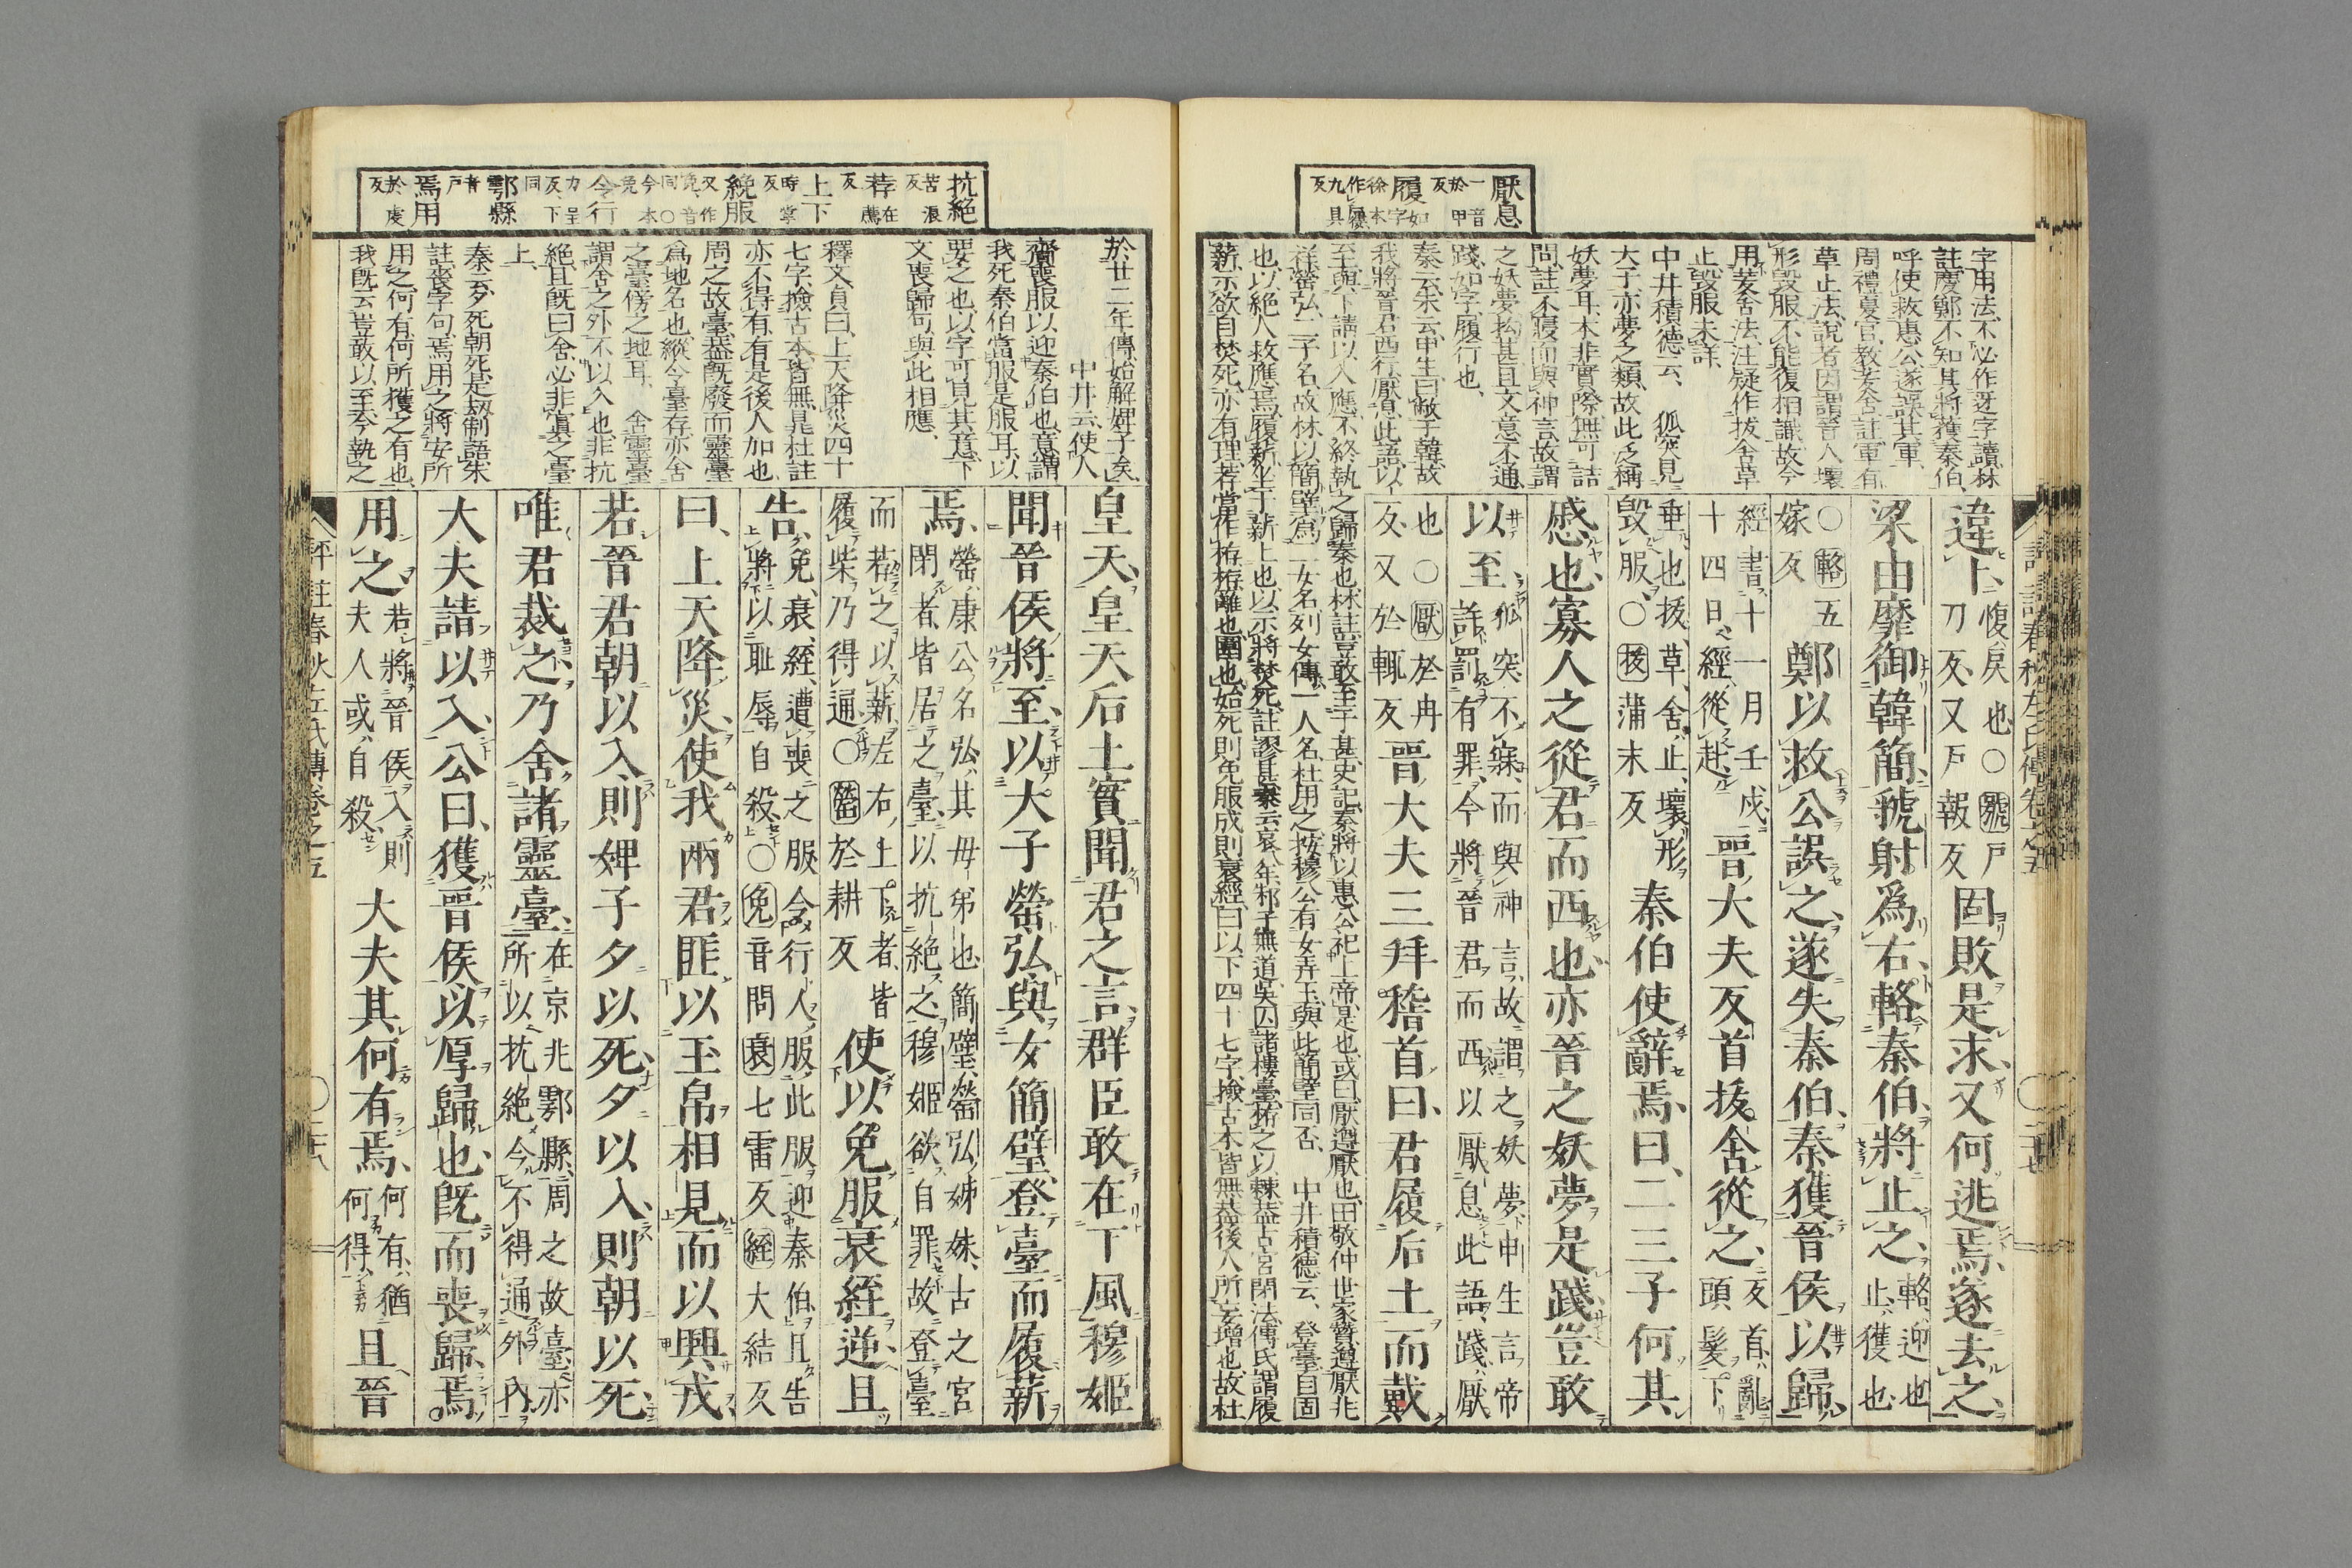 厭息 一音於甲反
履 如字徐本作屨九具反
字用法不必作迓字讀林
註慶鄭不知其將獲秦伯
呼使救惠公遂誤其軍
周禮夏官教茇舍註軍有
草止法說者因謂晉人壞
形毀服不能復相識故今
用茇舍法注疑作拔舍草
止毀服未詳
中井積德云狐突見
大子亦夢之類故此乏稱
妖夢耳本非實際無可詰
問註不寢而與神言故謂
之妖夢拘甚且文意不通
踐如字履行也
秦云朱云申生曰敝于韓故
我將晉君西行厭息此語以
違卜 愎戾也○號戶
刀反又戶報反
固敗是求又何逃焉遂去之
梁由靡御韓簡虢射爲右輅秦伯將止之 輅迎也
止獲也
○輅五
嫁反
鄭以救公誤之遂失秦伯秦獲晉侯以歸
經書十一月壬戌
十四日經從赴
晉大夫反首拔舍從之 反首亂
頭髮下
垂也拔草舍止壞形
毀服○拔蒲末反
秦伯使辭焉曰二三子何其
慼也寡人之從君而西也亦晉之妖夢是踐豈敢
以至 狐突不寐而與神言故謂之妖夢申生言帝
許罰有罪今將晉君而西以厭息此語踐厭
也○厭於冉
反又於輒反
晉大夫三拜稽首曰君履后土而戴
至與下請以入應不終執之歸秦也林註豈敢至于甚史記秦將以惠公祀上帝是也或曰厭遵厭也田敬仲世家贊遵厭兆
祥罃弘二子名故林以簡璧爲一女名列女傳一人名杜用之按穆公有女弄玉與此簡璧同否 中井積德云登臺自固
也以絶人救應焉履薪坐于薪上也以示將焚死註謬甚秦云哀八年邾子無道吳囚諸樓臺栫之以棘蓋古宮閉法傅氏謂履
薪示欲自焚死亦有理荐當作栫栫離也圍也始死則免服成則衰絰曰以下四十七字撿古本皆無蓋後人所妄增也故杜
抗絶 苦浪反
荐 在薦反
上下 時掌反
令行 力呈反下同
鄠縣 音戶
焉用 於虔反
於廿二年傳始解婢子矣
中井云使人
齎喪服以迎秦伯也意謂
我死秦伯當服是服耳以
要之也以字可見其意下
文喪歸句與此相應
釋文貞曰上天降災四十
七字撿古本皆無是杜註
亦不得有有是後人加也
周之故臺蓋旣廢而靈臺
爲地名也縱今臺存亦舍
之臺傍之地耳 舍靈臺
謂舍之外不以入也非抗
絶且旣曰舍必非寘之臺
上
秦云夕死朝死是劫制語朱
註喪字句焉用之將安所
用之何有何所獲之有也
我旣云豈敢以至今執之
皇天皇天后土實聞君之言群臣敢在下風穆姬
聞晉侯將至以大子罃弘與女簡璧登臺而履薪
焉 罃康公名弘其母弟也簡璧罃弘姊妹古之宮
閉者皆居之臺以抗絶之穆姬欲自罪故登臺
而荐之以薪左右上下者皆
履柴乃得通○罃於耕反
使以免服衰絰逆且
告 免衰絰遭喪之服令行人服此服迎秦伯且告
將以恥辱自殺○免音問衰七雷反絰大結反
曰上天降災使我兩君匪以玉帛相見而以興戎
若晉君朝以入則婢子夕以死夕以入則朝以死
唯君裁之乃舍諸靈臺 在京兆鄠縣周之故臺亦
所以抗絶令不得通外內
大夫請以入公曰獲晉侯以厚歸也旣而喪歸焉
用之 若將晉侯入則
夫人或自殺
大夫其何有焉 何有猶
何得
且晉
評註春秋左氏傳卷之五